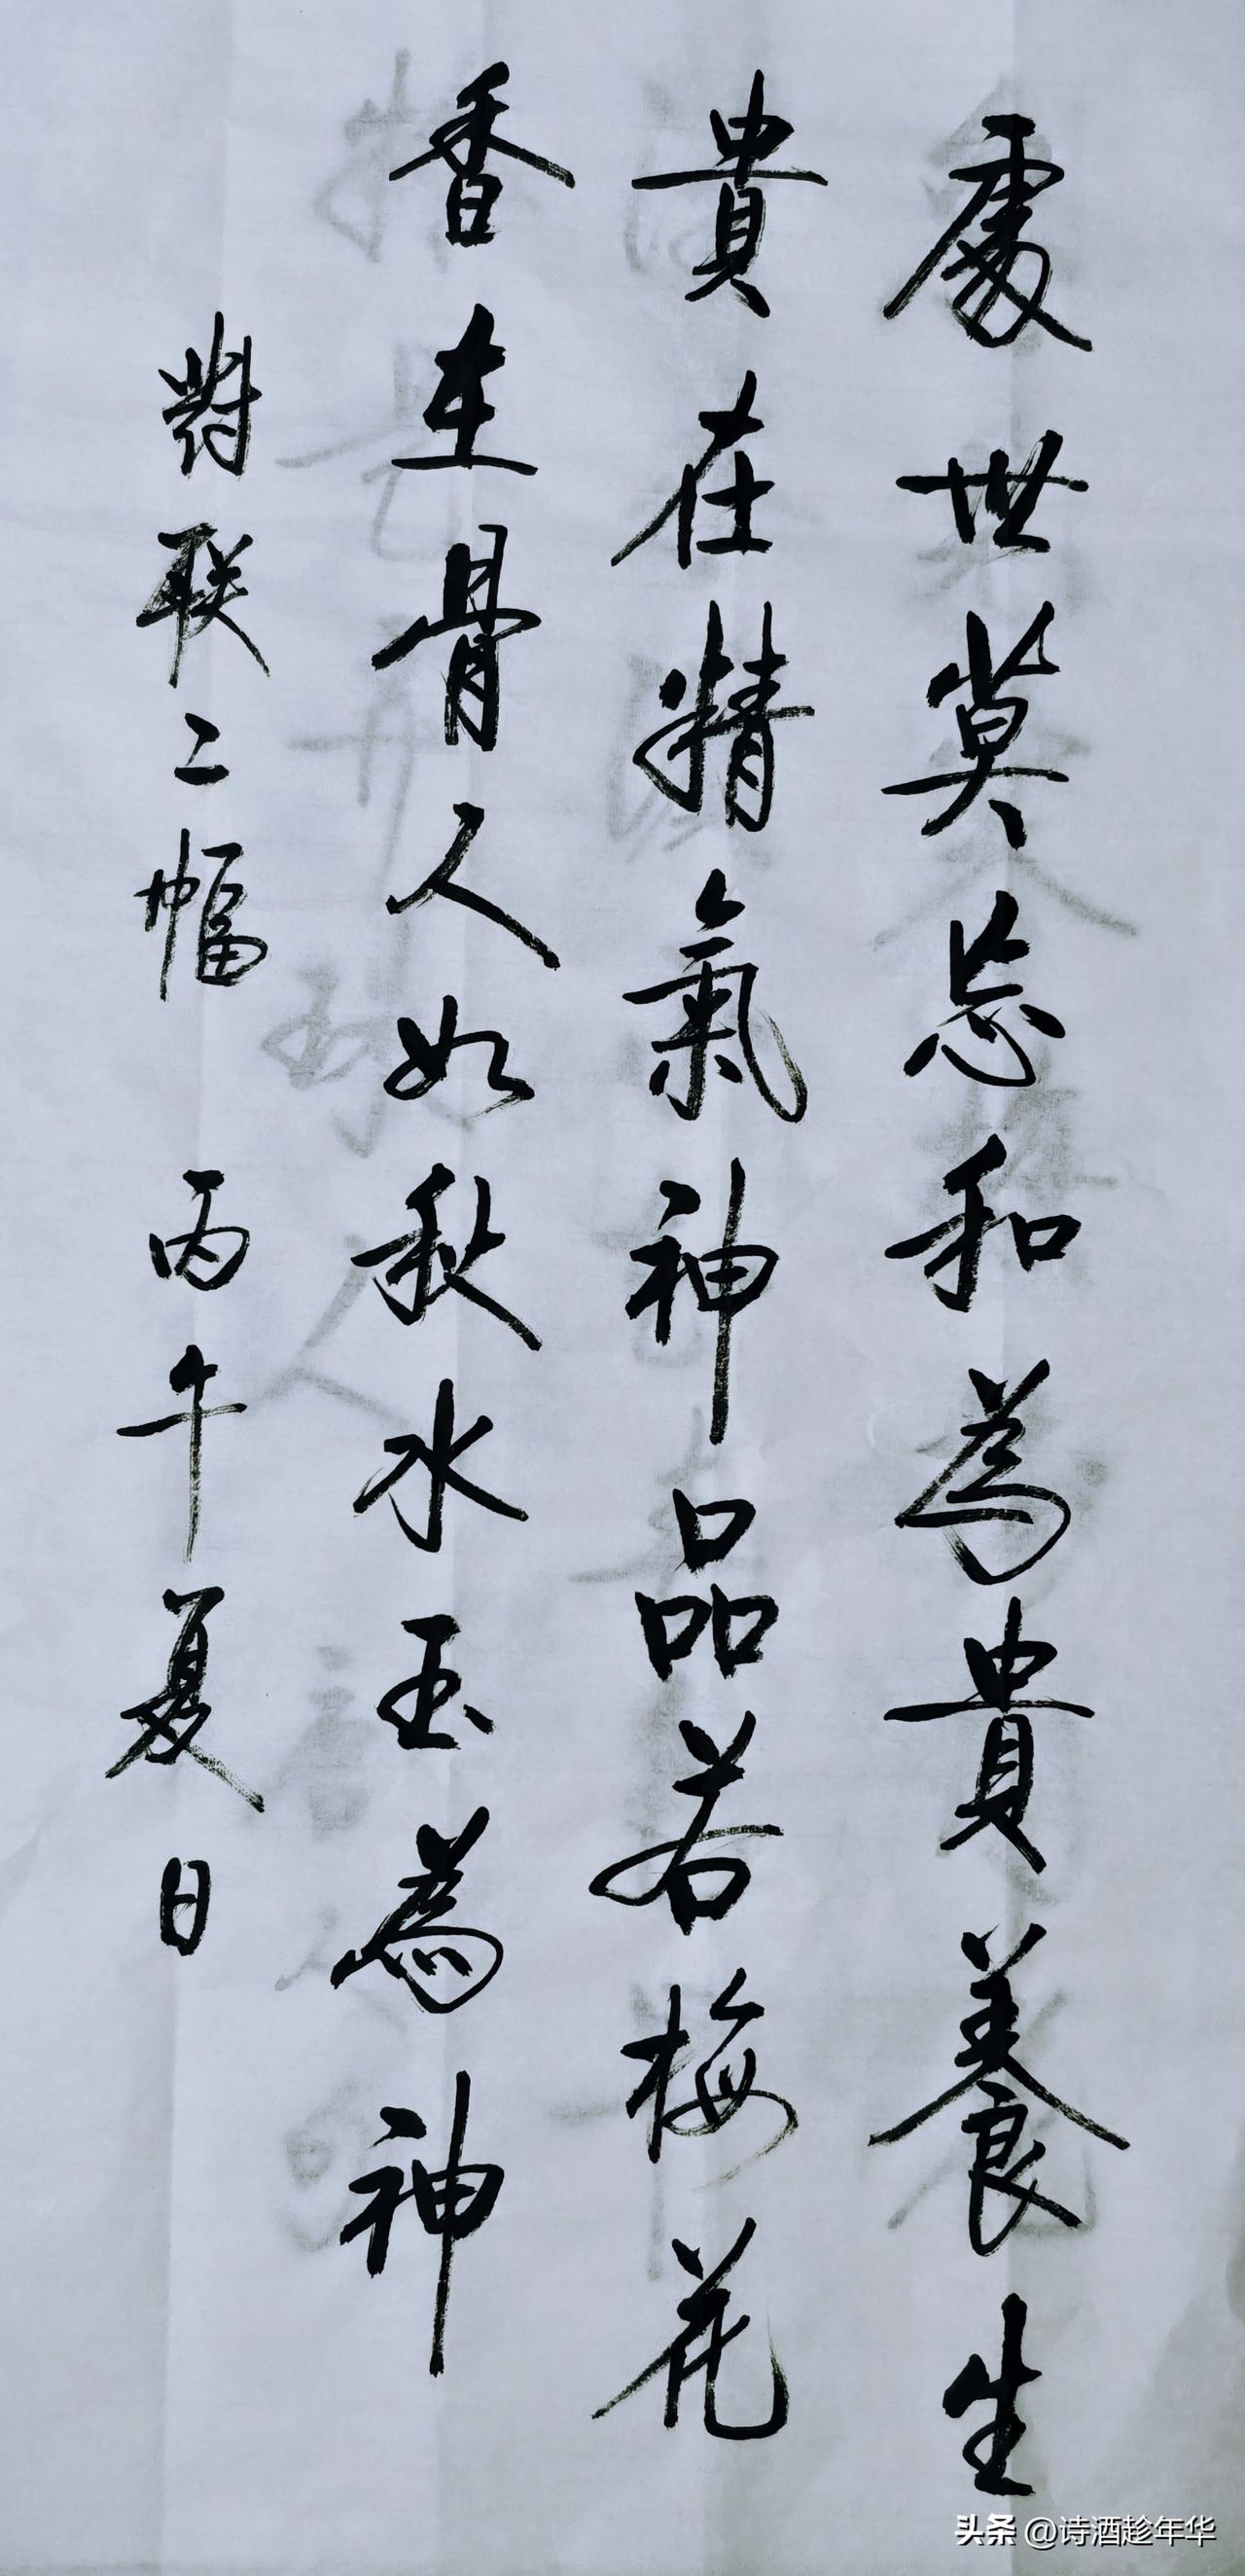 處世莫忘和為貴養生
貴在精氣神品若梅花
香在骨人如秋水玉為神
對联二幅 丙午夏日
头条 @诗酒趁年华